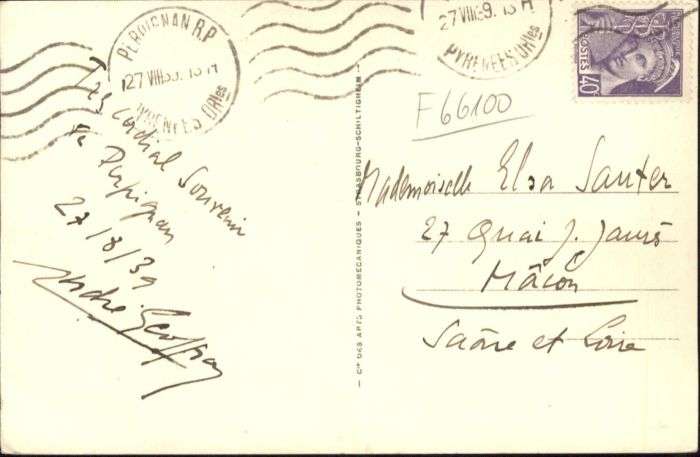 PERPIGNAN R.P
27 VIII 39. 13 H
PYRENEES ORles
27 VIII 39. 13 H
PYRENEES ORles
POSTES
40
F66100
Très cordial Souvenir
de Perpignan
27/8/39
André
Cie DES ARTS PHOTOMECANIQUES - STRASBOURG-SCHILTIGHEIM
Mademoiselle Elsa Sauter
27 Quai J. Jaurès
Mâcon
Saône et Loire